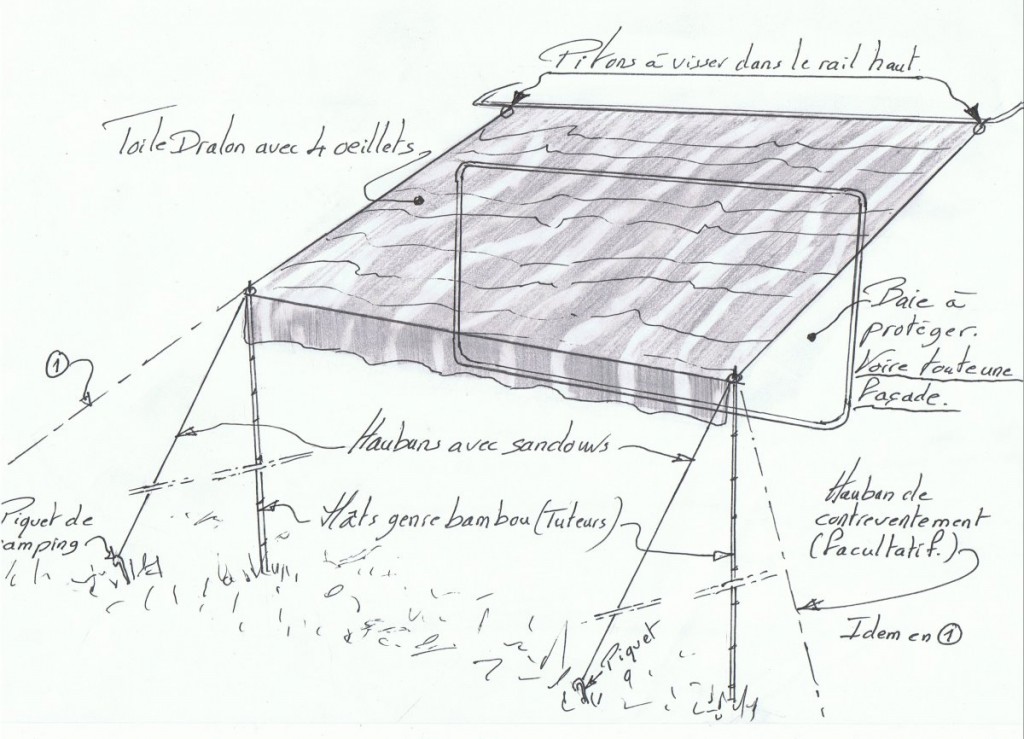 Pitons à visser dans le rail haut.
Toile Dralon avec 4 oeillets
Baie à
protéger.
Voire toute une
façade.
1
Haubans avec sandows
Mâts genre bambou (Tuteurs)
Hauban de
contreventement
(facultatif.)
Idem en 1
Piquet de
camping
Piquet